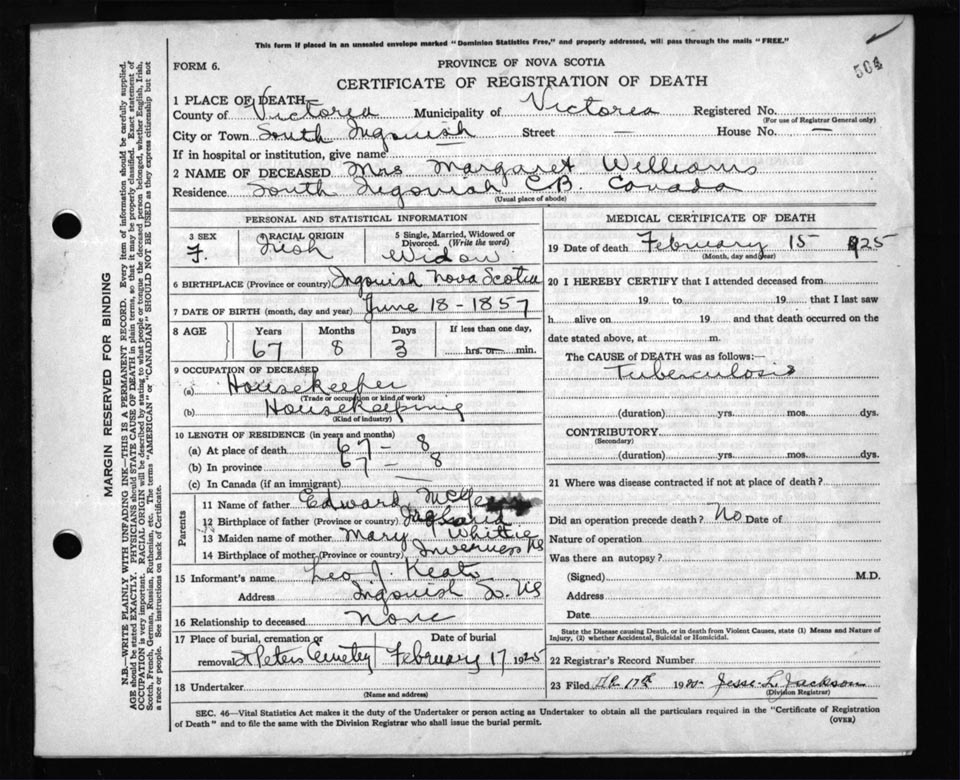 This form if placed in an unsealed envelope marked "Dominion Statistics Free," and properly addressed, will pass through the mails "FREE."
504
FORM 6.
PROVINCE OF NOVA SCOTIA
CERTIFICATE OF REGISTRATION OF DEATH
1 PLACE OF DEATH—
County of Victoria Municipality of Victoria Registered No.
(For use of Registrar General only)
City or Town South Ingonish Street — House No. —
If in hospital or institution, give name
2 NAME OF DECEASED Mrs Margaret Williams
Residence South Ingonish C.B. Canada
(Usual place of abode)
PERSONAL AND STATISTICAL INFORMATION
3 SEX F.
4 RACIAL ORIGIN Irish
5 Single, Married, Widowed or Divorced. (Write the word) Widow
6 BIRTHPLACE (Province or country) Ingonish Nova Scotia
7 DATE OF BIRTH (month, day and year) June 18-1857
8 AGE Years Months Days If less than one day,
67 8 3 hrs. or min.
9 OCCUPATION OF DECEASED
(a) Housekeeper
(Trade or occupation or kind of work)
(b) Housekeeping
(Kind of industry)
10 LENGTH OF RESIDENCE (in years and months)
(a) At place of death 67 - 8
(b) In province 67 - 8
(c) In Canada (if an immigrant)
Parents
11 Name of father Edward
12 Birthplace of father (Province or country)
13 Maiden name of mother Mary Whittie
14 Birthplace of mother (Province or country) Inverness NS
15 Informant's name Leo J. Keats
Address Ingonish So. NS
16 Relationship to deceased None
17 Place of burial, cremation or Date of burial
removal St Peters Cemetery February 17 1925
18 Undertaker
(Name and address)
MEDICAL CERTIFICATE OF DEATH
19 Date of death February 15 1925
(Month, day and year)
20 I HEREBY CERTIFY that I attended deceased from
19 to 19 that I last saw
h alive on 19 and that death occurred on the
date stated above, at m.
The CAUSE of DEATH was as follows:—
Tuberculosis
(duration) yrs. mos. dys.
CONTRIBUTORY
(Secondary)
(duration) yrs. mos. dys.
21 Where was disease contracted if not at place of death?
Did an operation precede death? No Date of
Nature of operation
Was there an autopsy?
(Signed) M.D.
Address
Date
State the Disease causing Death, or in death from Violent Causes, state (1) Means and Nature of
Injury, (2) whether Accidental, Suicidal or Homicidal.
22 Registrar's Record Number
23 Filed 17th 19 Jesse L Jackson
(Division Registrar)
SEC. 46—Vital Statistics Act makes it the duty of the Undertaker or person acting as Undertaker to obtain all the particulars required in the "Certificate of Registration
of Death" and to file the same with the Division Registrar who shall issue the burial permit.
(OVER)
MARGIN RESERVED FOR BINDING
N.B.—WRITE PLAINLY WITH UNFADING INK—THIS IS A PERMANENT RECORD. Every item of information should be carefully supplied.
AGE should be stated EXACTLY. PHYSICIANS should STATE CAUSE OF DEATH in plain terms, so that it may be properly classified. Exact statement of
OCCUPATION is very important. RACIAL ORIGIN will be described by stating to what people or tongue the deceased person belonged, whether English, Irish,
Scotch, French, German, Russian, Ruthenian, etc. The terms "AMERICAN" or "CANADIAN" SHOULD NOT BE USED as they express citizenship but not
a race or people. See instructions on back of Certificate.